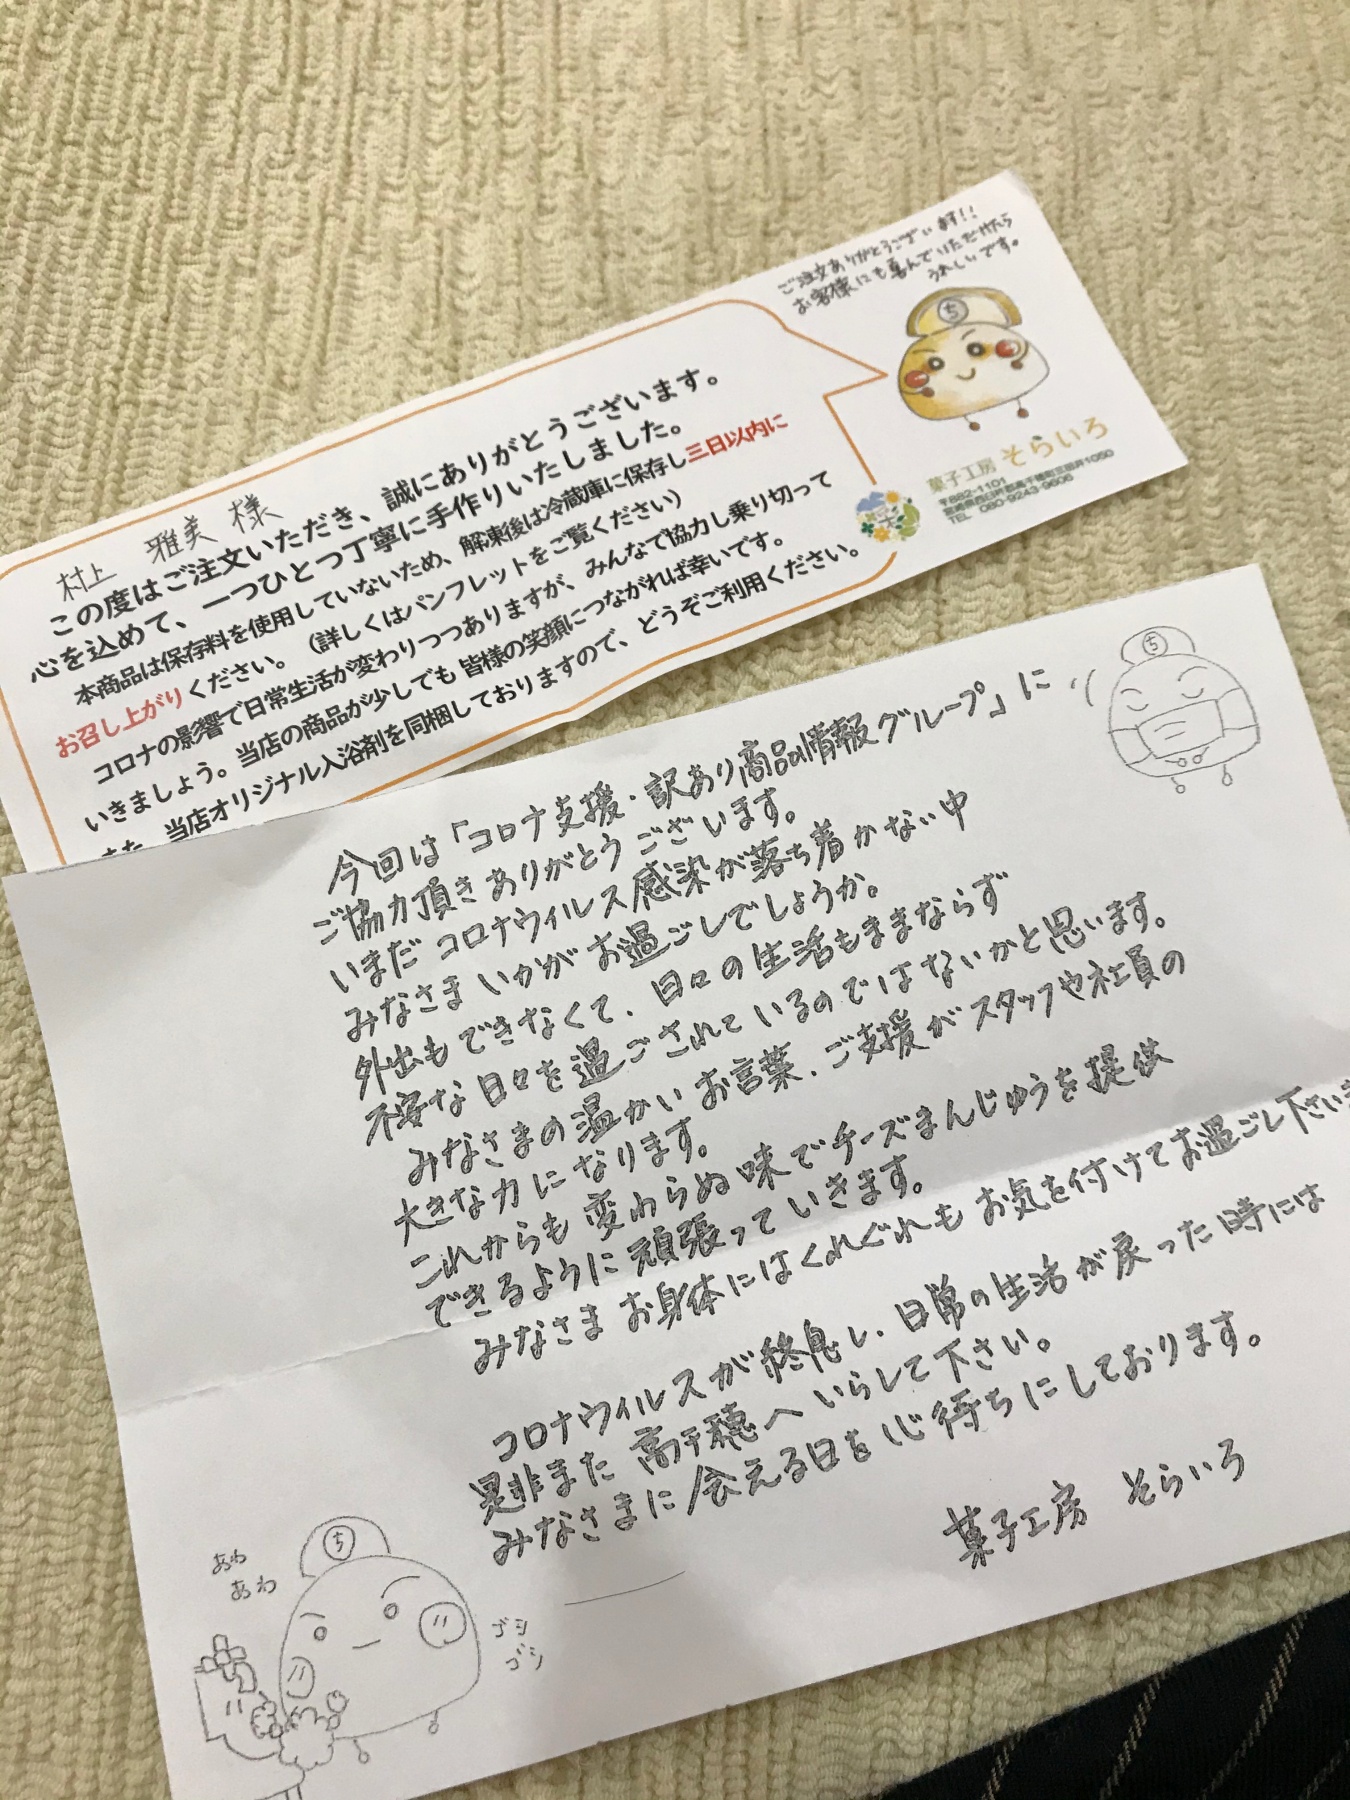 ご注文ありがとうございます!!
お客様にも喜んでいただけたら
うれしいです。
ち
菓子工房 そらいろ
〒882-1101
宮崎県西臼杵郡高千穂町三田井1050
TEL 080-9243-9606
村上 雅美 様
この度はご注文いただき、誠にありがとうございます。
心を込めて、一つひとつ丁寧に手作りいたしました。
本商品は保存料を使用していないため、解凍後は冷蔵庫に保存し三日以内に
お召し上がりください。(詳しくはパンフレットをご覧ください)
コロナの影響で日常生活が変わりつつありますが、みんなで協力し乗り切って
いきましょう。当店の商品が少しでも皆様の笑顔につながれば幸いです。
また、当店オリジナル入浴剤を同梱しておりますので、どうぞご利用ください。
ち
今回は「コロナ支援・訳あり商品情報グループ」に
ご協力頂きありがとうございます。
いまだコロナウィルス感染が落ち着かない中
みなさまいかがお過ごしでしょうか。
外出もできなくて、日々の生活もままならず
不安な日々を過ごされているのではないかと思います。
みなさまの温かいお言葉、ご支援がスタッフや社員の
大きな力になります。
これからも変わらぬ味でチーズまんじゅうを提供
できるように頑張っていきます。
みなさまお身体にはくれぐれもお気を付けてお過ごし下さいませ
コロナウィルスが終息し、日常の生活が戻った時には
是非また高千穂へいらして下さい。
みなさまに会える日を心待ちにしております。
菓子工房 そらいろ
ち
あわ
あわ
ゴシ
ゴシ